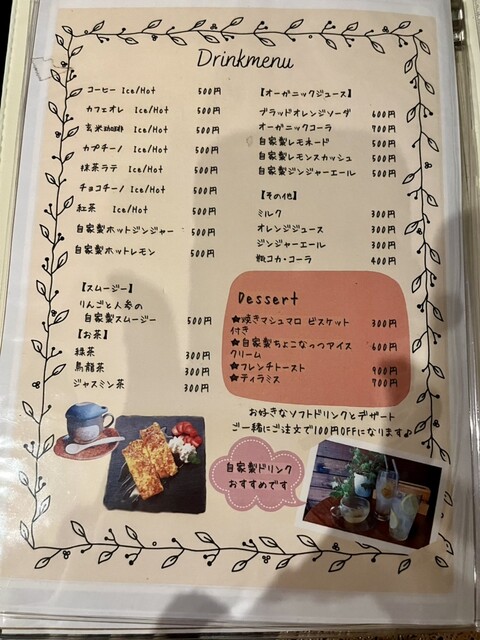 Drinkmenu
コーヒー Ice/Hot 500円
カフェオレ Ice/Hot 500円
玄米珈琲 Ice/Hot 500円
カプチーノ Ice/Hot 500円
抹茶ラテ Ice/Hot 500円
チョコチーノ Ice/Hot 500円
紅茶 Ice/Hot 500円
自家製ホットジンジャー 500円
自家製ホットレモン 500円
【スムージー】
りんごと人参の
自家製スムージー 500円
【お茶】
緑茶 300円
烏龍茶 300円
ジャスミン茶 300円
【オーガニックジュース】
ブラッドオレンジソーダ 600円
オーガニックコーラ 700円
自家製レモネード 500円
自家製レモンスカッシュ 500円
自家製ジンジャーエール 500円
【その他】
ミルク 300円
オレンジジュース 300円
ジンジャーエール 300円
瓶コカ・コーラ 400円
Dessert
★焼きマシュマロ ビスケット 300円
付き
★自家製ちょこなっつアイス 600円
クリーム
★フレンチトースト 900円
★ティラミス 700円
お好きなソフトドリンクとデザート
ご一緒にご注文で100円OFFになります♪
自家製ドリンク
おすすめです